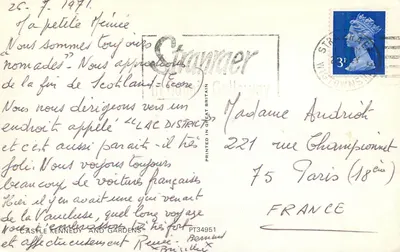 26.7.1971.
Ma petite Mémée
Nous sommes toujours
nomades". Nous approchons
de la fin de Scotland-Ecosse
Nous nous dirigeons vers un
endroit appelé "LAC DISTRICT"
et c'est aussi parait-il très
joli. Nous voyons toujours
beaucoup de voitures françaises
Hier il y en avait une qui venait
de la Vaucluse, quel long voyage
Nous t'embrassons très fort
et affectueusement Renée Bernard
CASTLE KENNEDY AND GARDENS
PT34951
PRINTED IN GREAT BRITAIN
Stranraer
Galloway
3P
Madame Andrioh
221 rue Championnet
75 Paris (18ème)
FRANCE